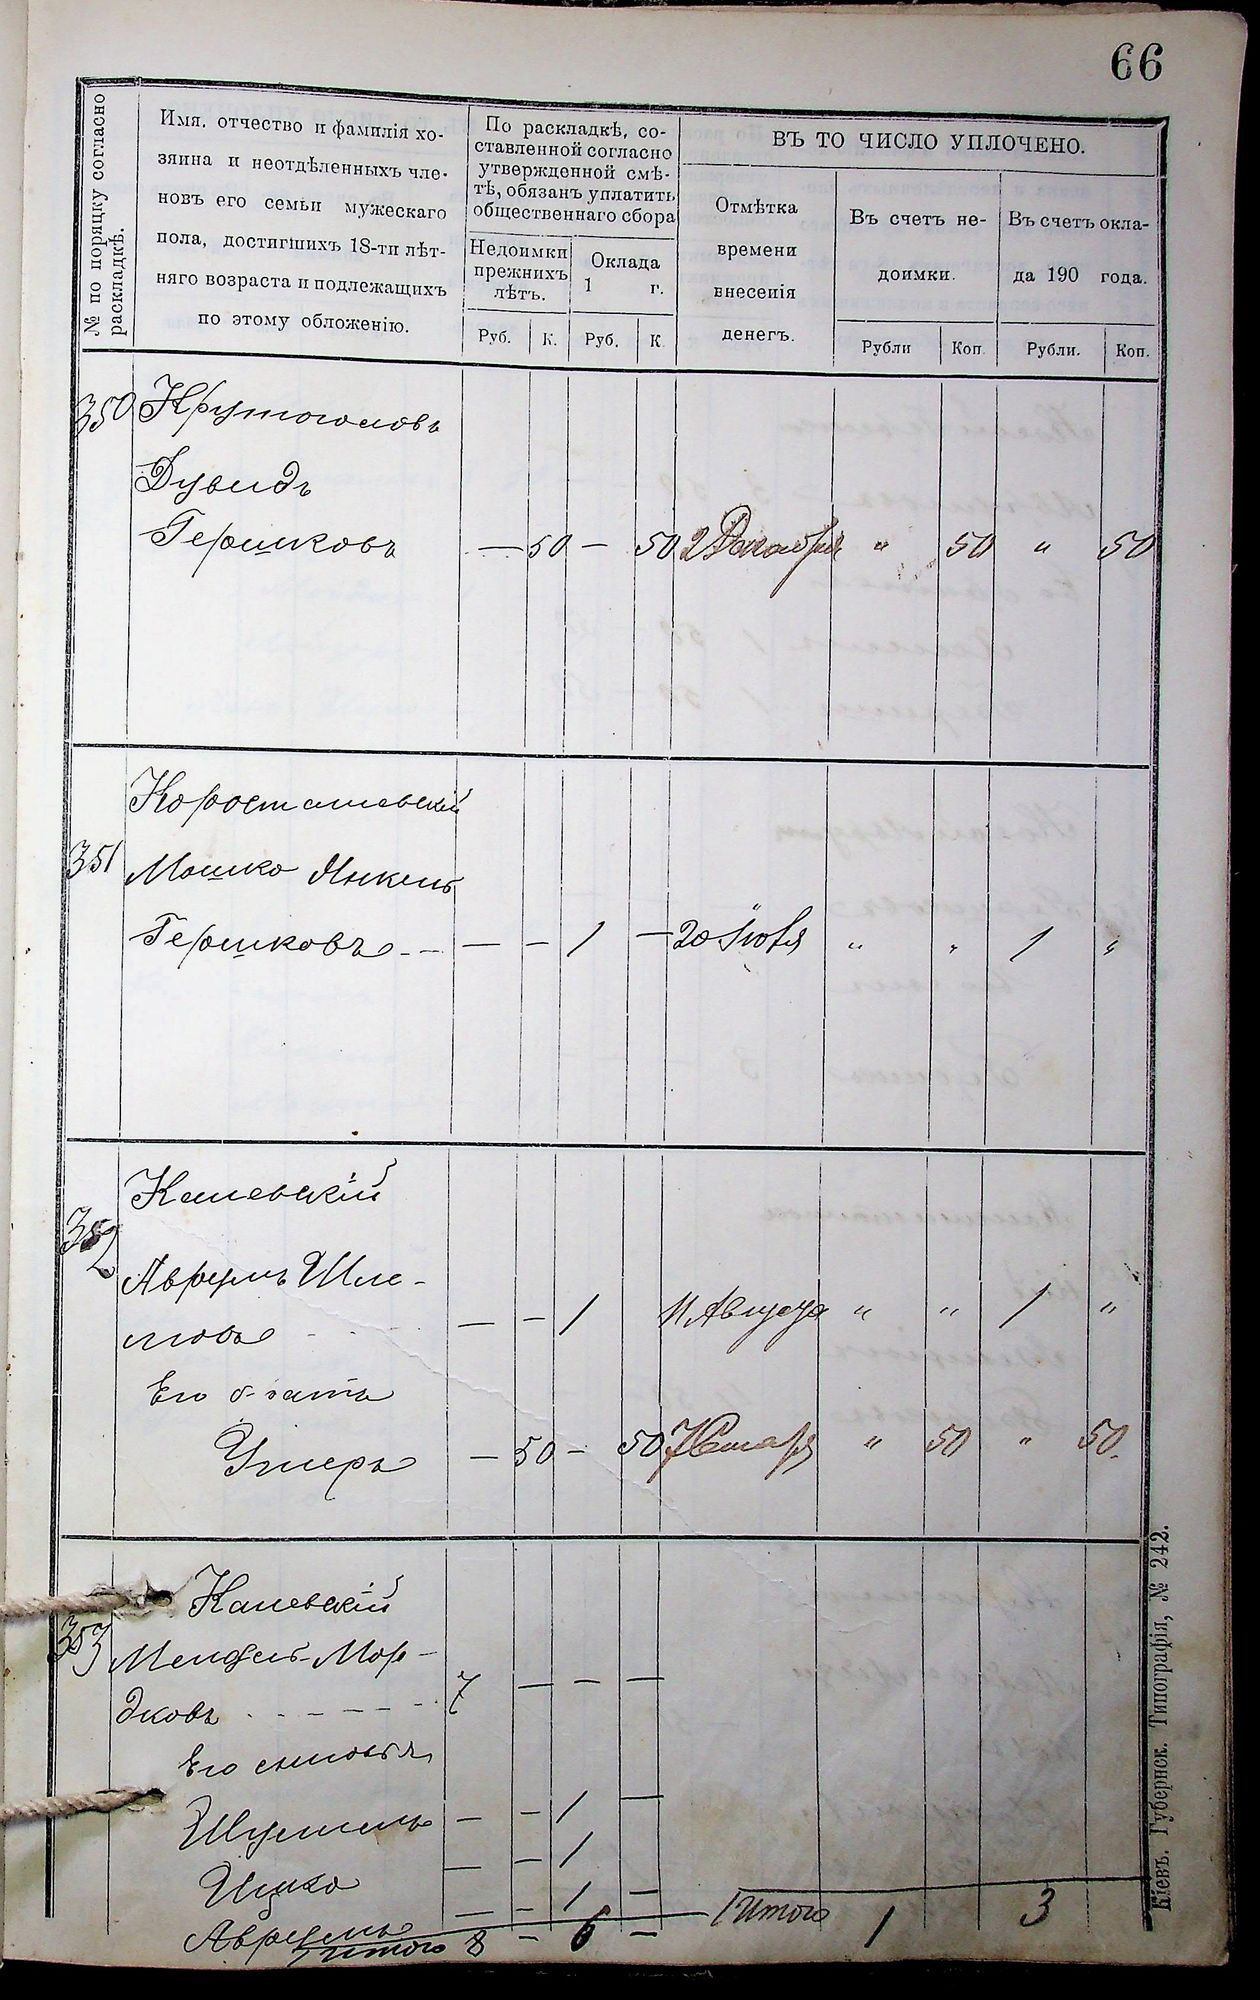 66
№ по порядку согласно
раскладкѣ.
Имя, отчество и фамилія хо-
зяина и неотдѣленныхъ чле-
новъ его семьи мужескаго
пола, достигшихъ 18-ти лѣт-
няго возраста и подлежащихъ
по этому обложенію.
По раскладкѣ, со-
ставленной согласно
утвержденной смѣ-
тѣ, обязанъ уплатить
общественнаго сбора
Недоимки
прежнихъ
лѣтъ.
Оклада
1 г.
Руб. К. Руб. К
ВЪ ТО ЧИСЛО УПЛОЧЕНО.
Отмѣтка
времени
внесенія
денегъ.
Въ счетъ не-
доимки.
Въ счетъ окла-
да 190 года.
Рубли Коп. Рубли. Коп.
350 Крутоголовъ
Дувидъ
Гершковъ — 50 — 50 2 Декабря " 50 " 50
Коросташевскій
351 Мошко Янкель
Гершковъ - - — — 1 — 20 Іюля " " 1 "
Каневскій
352
Аврумъ Шле-
мовъ — — 1 11 Августа " " 1 "
Его братъ
Умеръ — 50 — 50 7 Января " 50 " 50.
Каневскій
353 Мендель-Мор-
дковъ - - - - - 7 — — —
Его сыновья
Шулимъ — — 1 —
Ицко — — 1
Аврумъ — — 1 —
Итого 8 — 6 —
Итого 1 3
Кіевъ. Губернск. Типографія, № 242.